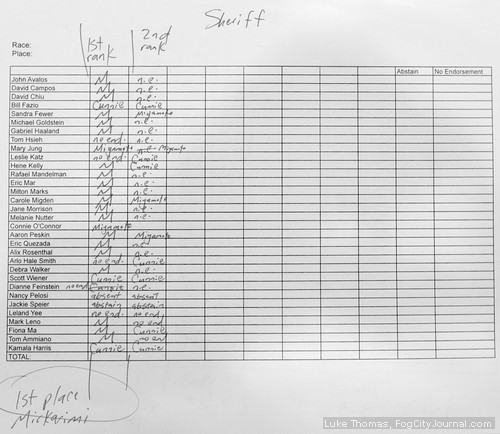 Sheriff
1st rank 2nd rank
Race:
Place:
Abstain No Endorsement
John Avalos M n.e.
David Campos M n.e.
David Chiu M n.e.
Bill Fazio Cunnie Cunnie
Sandra Fewer M Miyamoto
Michael Goldstein M n.e.
Gabriel Haaland M n.e.
Tom Hsieh no end. n.e.
Mary Jung Miyamoto n.e. Miyamoto
Leslie Katz no end. Cunnie
Hene Kelly M Cunnie
Rafael Mandelman M n.e.
Eric Mar M n.e.
Milton Marks M n.e.
Carole Migden M Miyamoto
Jane Morrison M n.e.
Melanie Nutter M n.e.
Connie O'Connor Miyamoto
Aaron Peskin M Miyamoto
Eric Quezada M n.e.
Alix Rosenthal M n.e.
Arlo Hale Smith no end. Cunnie
Debra Walker M n.e.
Scott Wiener Cunnie Cunnie
Dianne Feinstein no end Cunnie n.e.
Nancy Pelosi absent absent
Jackie Speier abstain abstain
Leland Yee no end. no end
Mark Leno M no end
Fiona Ma M Cunnie
Tom Ammiano M no end
Kamala Harris Cunnie Cunnie
TOTAL:
1st place
Mirkarimi
Luke Thomas, FogCityJournal.com